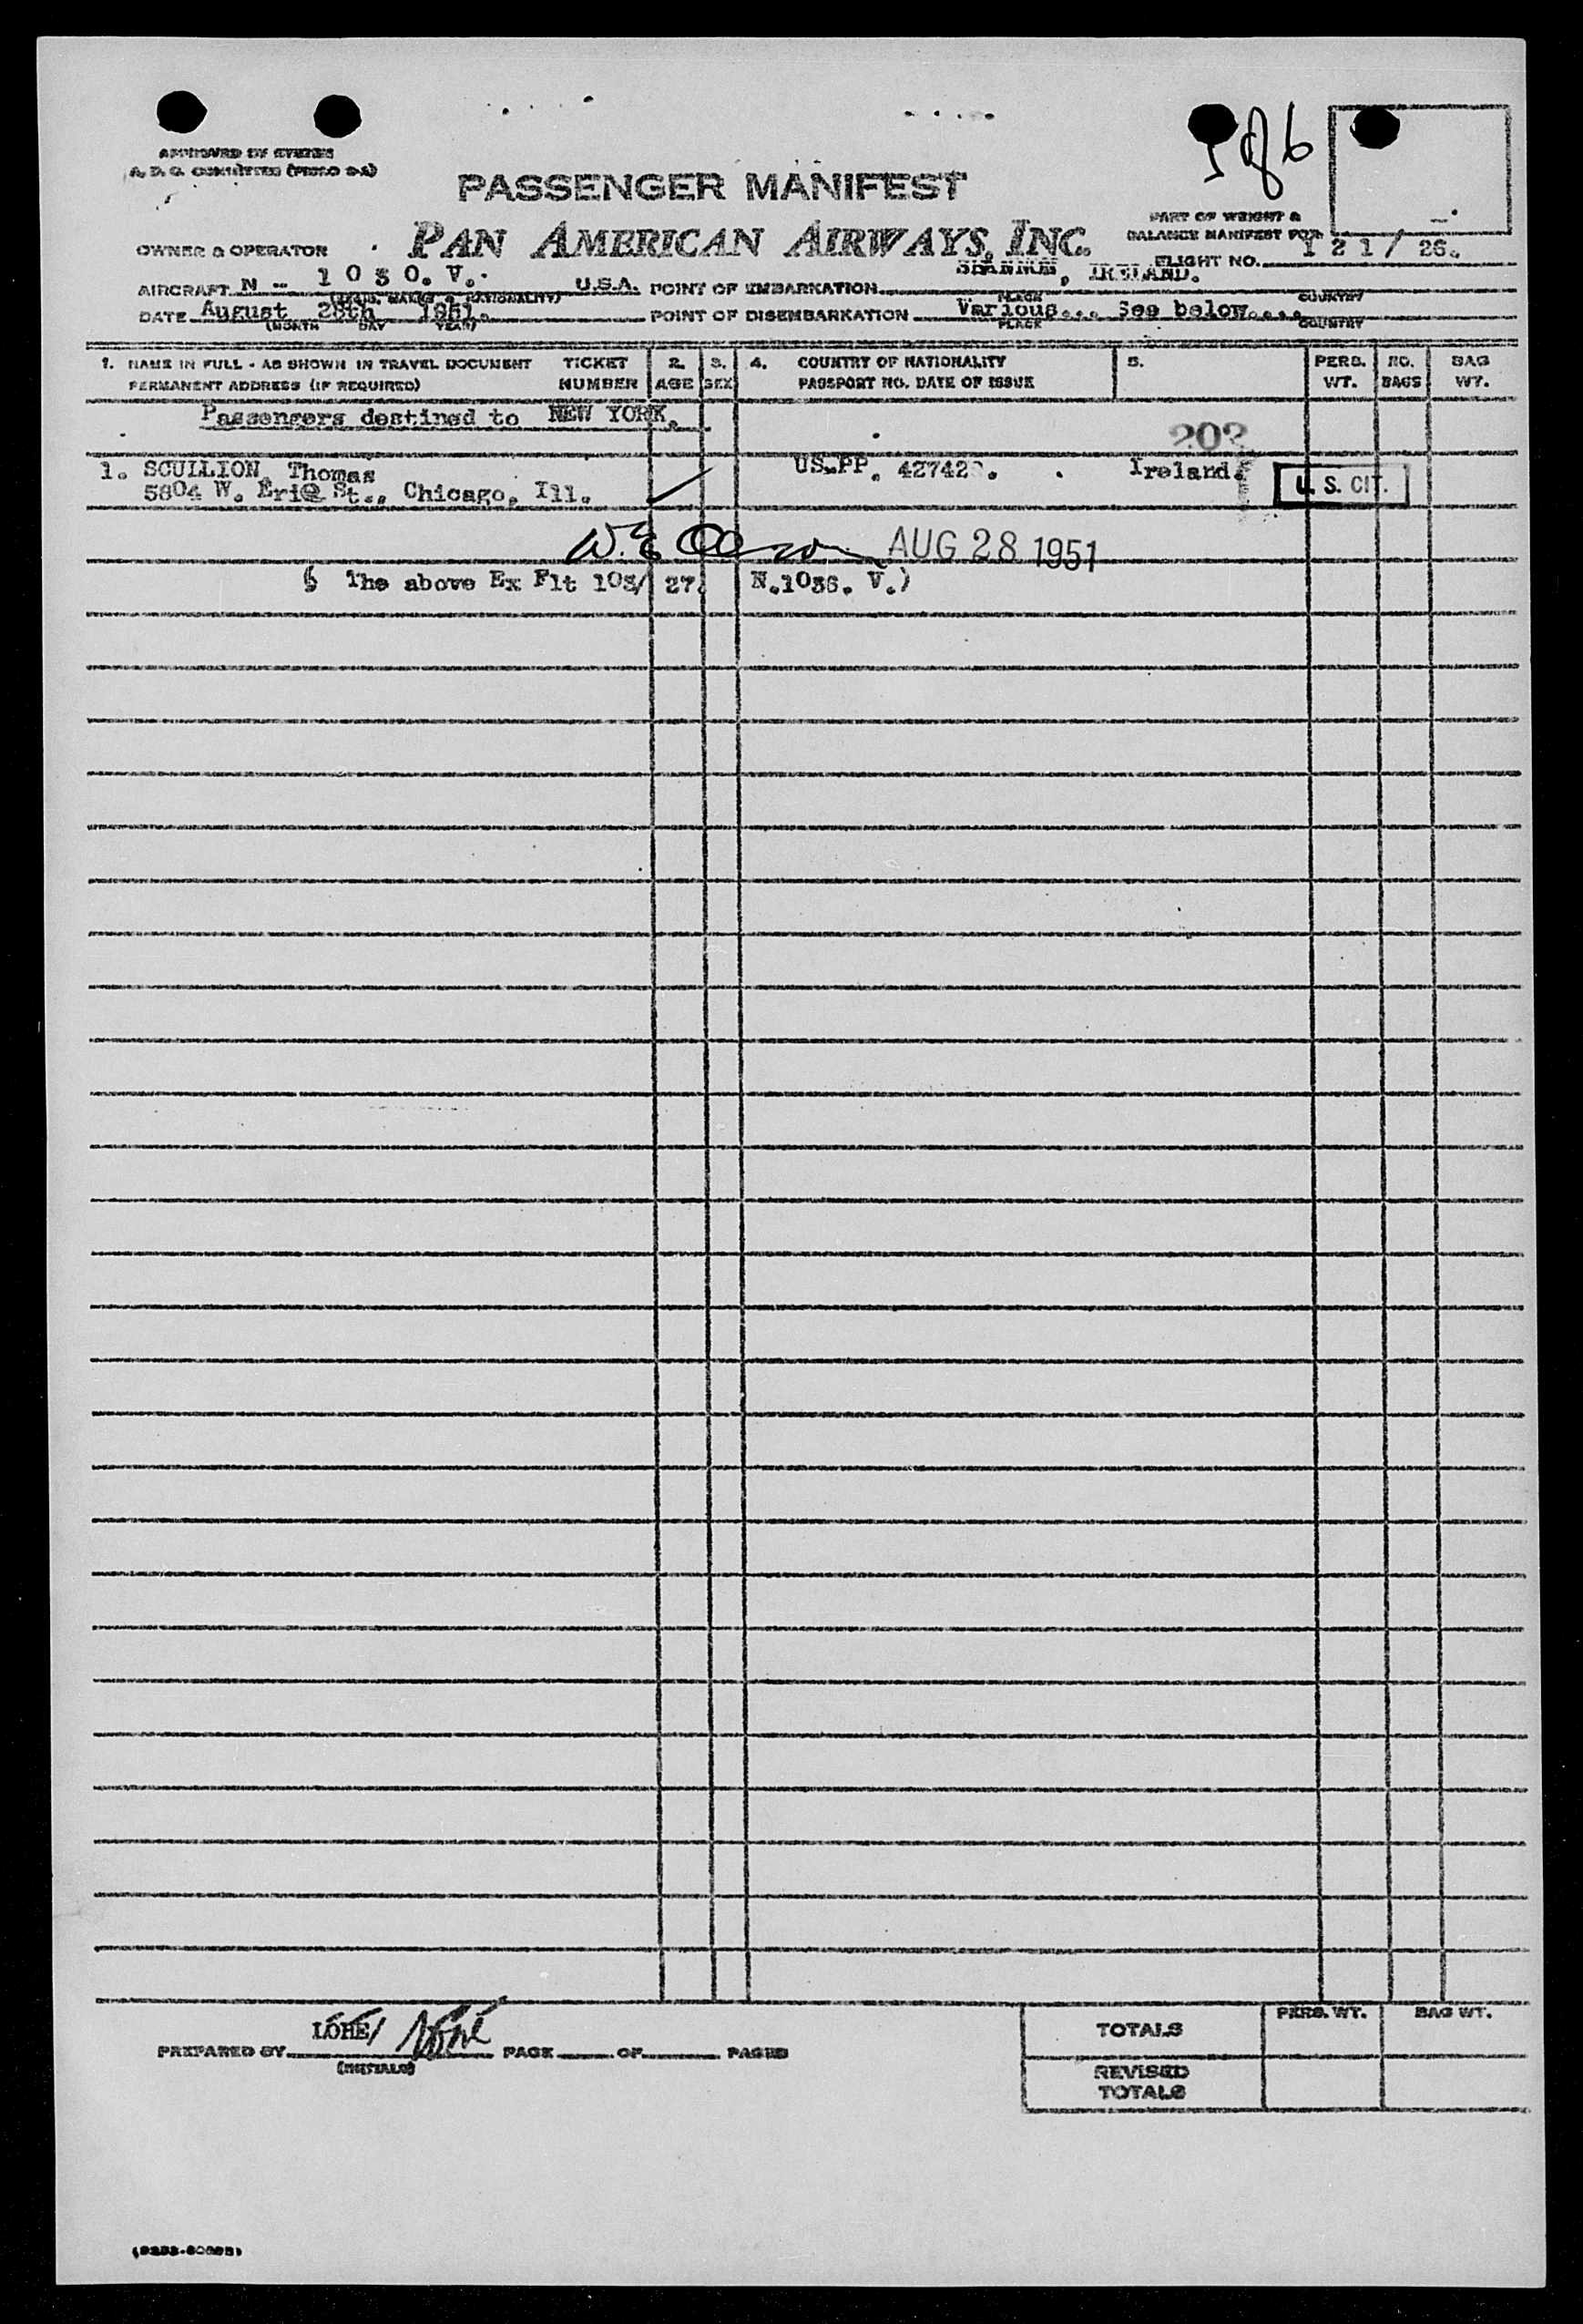 APPROVED BY
A. D. C. COMMITTEE
PASSENGER MANIFEST
PART OF WEIGHT &
BALANCE MANIFEST FOR
OWNER & OPERATOR PAN AMERICAN AIRWAYS, INC. FLIGHT NO. 1 2 1 / 26.
AIRCRAFT N - 1 0 3 0. V. U.S.A. POINT OF EMBARKATION SHANNON, IRELAND.
(REGIS. MARKS & NATIONALITY) PLACE COUNTRY
DATE August 28th 1951. POINT OF DISEMBARKATION Various... See below....
(MONTH DAY YEAR) PLACE COUNTRY
1. NAME IN FULL - AS SHOWN IN TRAVEL DOCUMENT TICKET 2. 3. 4. COUNTRY OF NATIONALITY 5. PERS. NO. BAG
PERMANENT ADDRESS (IF REQUIRED) NUMBER AGE SEX PASSPORT NO. DATE OF ISSUE WT. BAGS WT.
Passengers destined to NEW YORK.
202
1. SCULLION, Thomas US.PP. 42742 . Ireland. U. S. CIT.
5804 W. Erie St., Chicago, Ill.
AUG 28 1951
The above Ex Flt 103/ 27. N.1036. V.)
LOHE/
PREPARED BY PAGE OF PAGES
(INITIALS)
PERS. WT. BAG WT.
TOTALS
REVISED
TOTALS